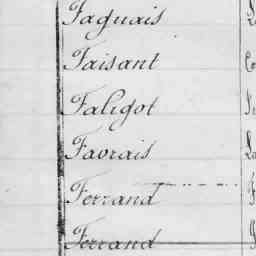 Faguais
Faisant
Faligot
Favrais
Ferrand
Ferrand